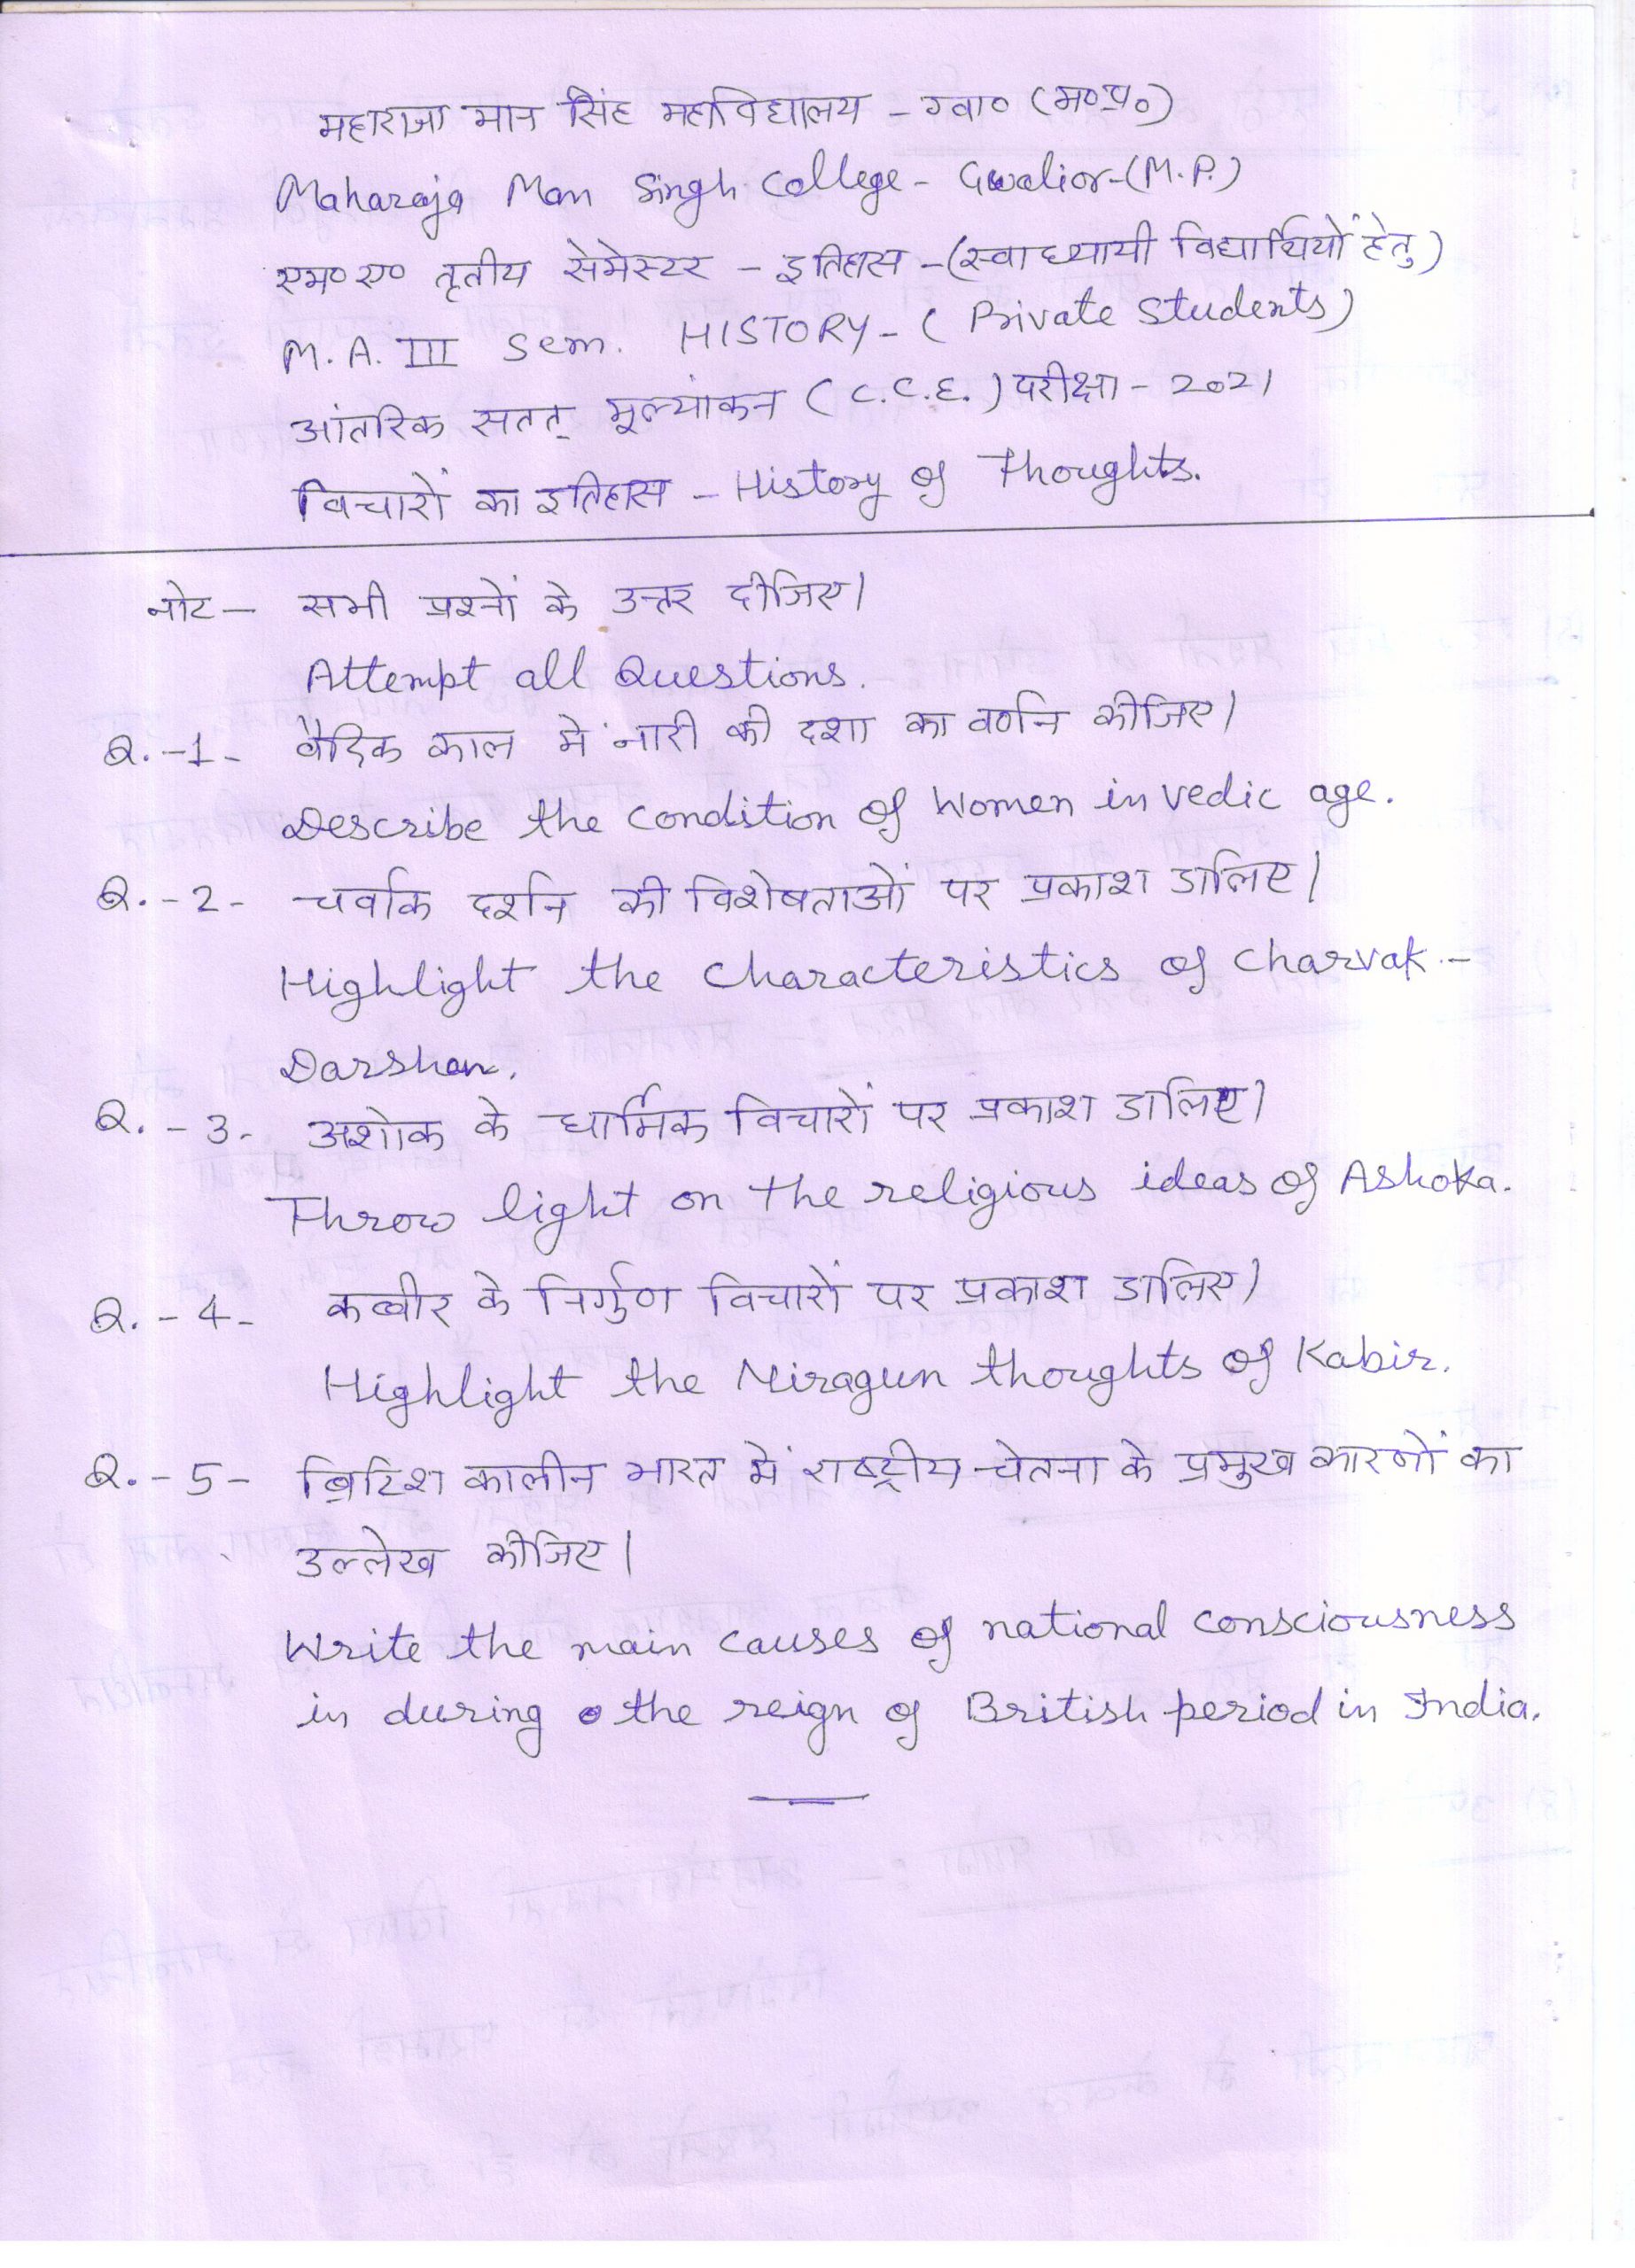 महाराजा मान सिंह महाविद्यालय - ग्वा० (म०प्र०)
Maharaja Man Singh College - Gwalior-(M.P.)
एम० ए० तृतीय सेमेस्टर - इतिहास -(स्वाध्यायी विद्यार्थियों हेतु)
M.A. III Sem. HISTORY- ( Private Students)
आंतरिक सतत् मूल्यांकन (C.C.E.) परीक्षा - 2021
विचारों का इतिहास - History of Thoughts.
नोट - सभी प्रश्नों के उत्तर दीजिए।
Attempt all Questions.
Q.-1- वैदिक काल में नारी की दशा का वर्णन कीजिए।
Describe the condition of Women in vedic age.
Q.-2- चर्वाक दर्शन की विशेषताओं पर प्रकाश डालिए।
Highlight the characteristics of Charvak-
Darshan.
Q.-3- अशोक के धार्मिक विचारों पर प्रकाश डालिए।
Throw light on the religious ideas of Ashoka.
Q.-4- कबीर के निर्गुण विचारों पर प्रकाश डालिए।
Highlight the Niragun thoughts of Kabir.
Q.-5- ब्रिटिश कालीन भारत में राष्ट्रीय चेतना के प्रमुख कारणों का
उल्लेख कीजिए।
Write the main causes of national consciousness
in during the reign of British period in India.